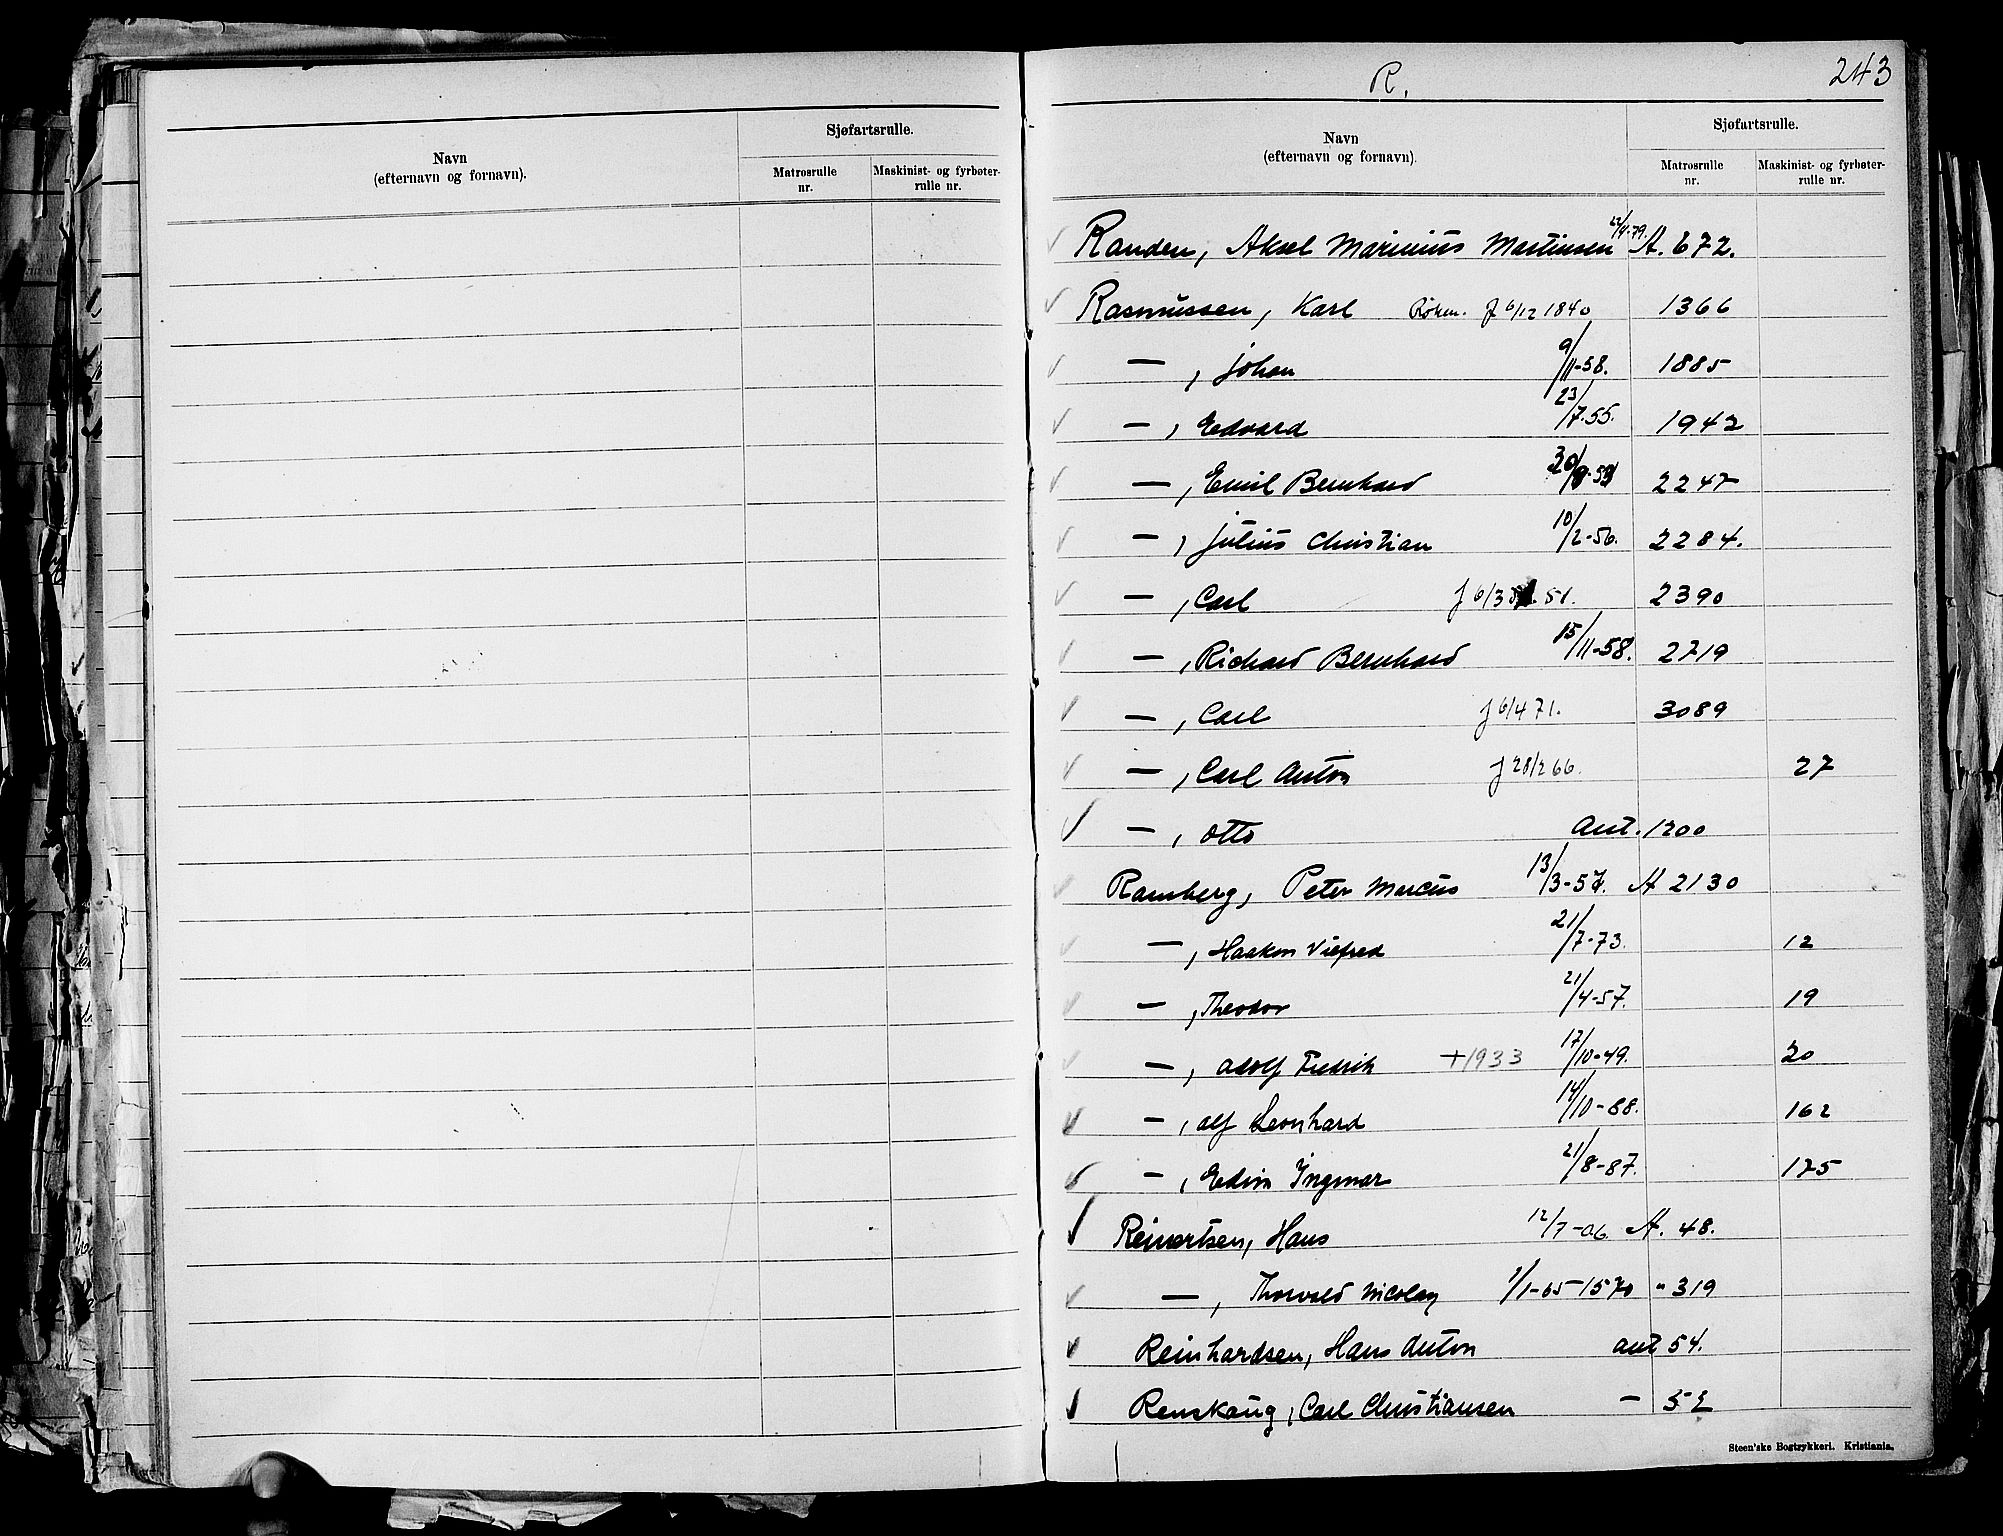 Navn
(efternavn og fornavn).
Sjøfartsrulle.
Matrosrulle nr.
Maskinist- og fyrbøter-rulle nr.
R.
243
Navn
(efternavn og fornavn).
Sjøfartsrulle.
Matrosrulle nr.
Maskinist- og fyrbøter-rulle nr.
Randen, Aksel Marinius Martinsen 22/4-79. A. 672.
Rasmussen, Karl Røken. f 6/12 1840 1366
—, Johan 9/11-58. 1885
—, Edvard 23/7-55. 1942
—, Emil Bernhard 2247
—, Julius Christian 10/2-56. 2284.
—, Carl f 6/3 51. 2390
—, Richard Bernhard 15/11-58. 2719
—, Carl f 6/4 71. 3089
—, Carl Anton f 28/2 66. 27
—, Otto Ant. 1200
Ramberg, Peter Marcus 13/3-57. A 2130
—, Haakon Vilfred 21/7-73. 12
—, Theodor 21/4-57. 19
—, Adolf Fredrik +1933 17/10-49. 20
—, Alf Leonhard 14/10-88. 162
—, Edvin Ingmar 21/8-87. 175
Reinertsen, Hans 12/7-06. A. 48.
—, Thorvald Nicolay 1/1-65-1570 " 319
Reinhardsen, Hans Anton ant 54.
Renskaug, Carl Christiansen — 52
Steen'ske Bogtrykkeri. Kristiania.